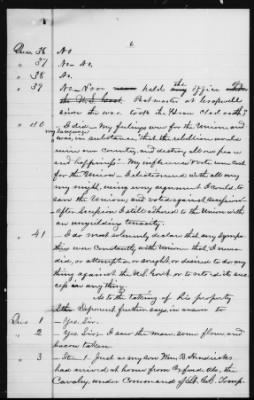 6
Ques 36 No
" 37 No. No.
" 38 No.
" 39 No — Nor held the any office
the U.S. Govt. Postmaster at
since the war. took the Iron Clad oath
" 40 I did — My feelings were for the Union, and
my language
was, in substance, that the rebellion would
ruin our country, and destroy all our peace
and happiness. My influence & vote were cast
for the Union — I electioneered with all my
my might, using every argument I could to
save the Union, and voted against Secession
After Secession I still adhered to the Union with
an unyielding tenacity.
" 41 I do most solemnly declare that my Sympa
thies were Constantly with Union — that I never
did, or attempted, or sought, or desired to do any
thing against the U.S. Govt. or to retard its suc
cess in anything
As to the taking of his property
Deponent further says, in answer to
Ques 1 — Yes. Sir.
" 2 — Yes. Sir. I saw the man, some flour, and
bacon taken
" 3 — Item 1. Just as my son Wm. B. Hendricks
had arrived at home from Oxford Ala. the
Cavalry, under Command of